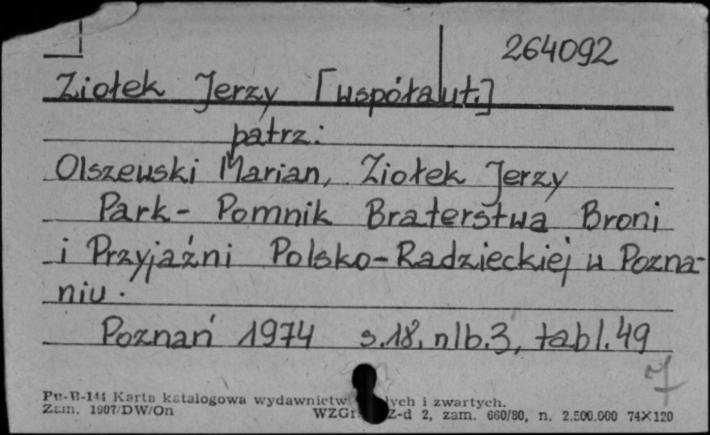 264092
Ziołek Jerzy [współaut.]
patrz:
Olszewski Marian, Ziołek Jerzy
Park- Pomnik Braterstwa Broni
i Przyjaźni Polsko-Radzieckiej w Pozna-
niu.
Poznań 1974 s.18, nlb.3, tabl.49
7
Pu-B-144 Karta katalogowa wydawnictw ych i zwartych.
Zam. 1907/DW/On WZGr. Z-d 2, zam. 660/80, n. 2.500.000 74×120